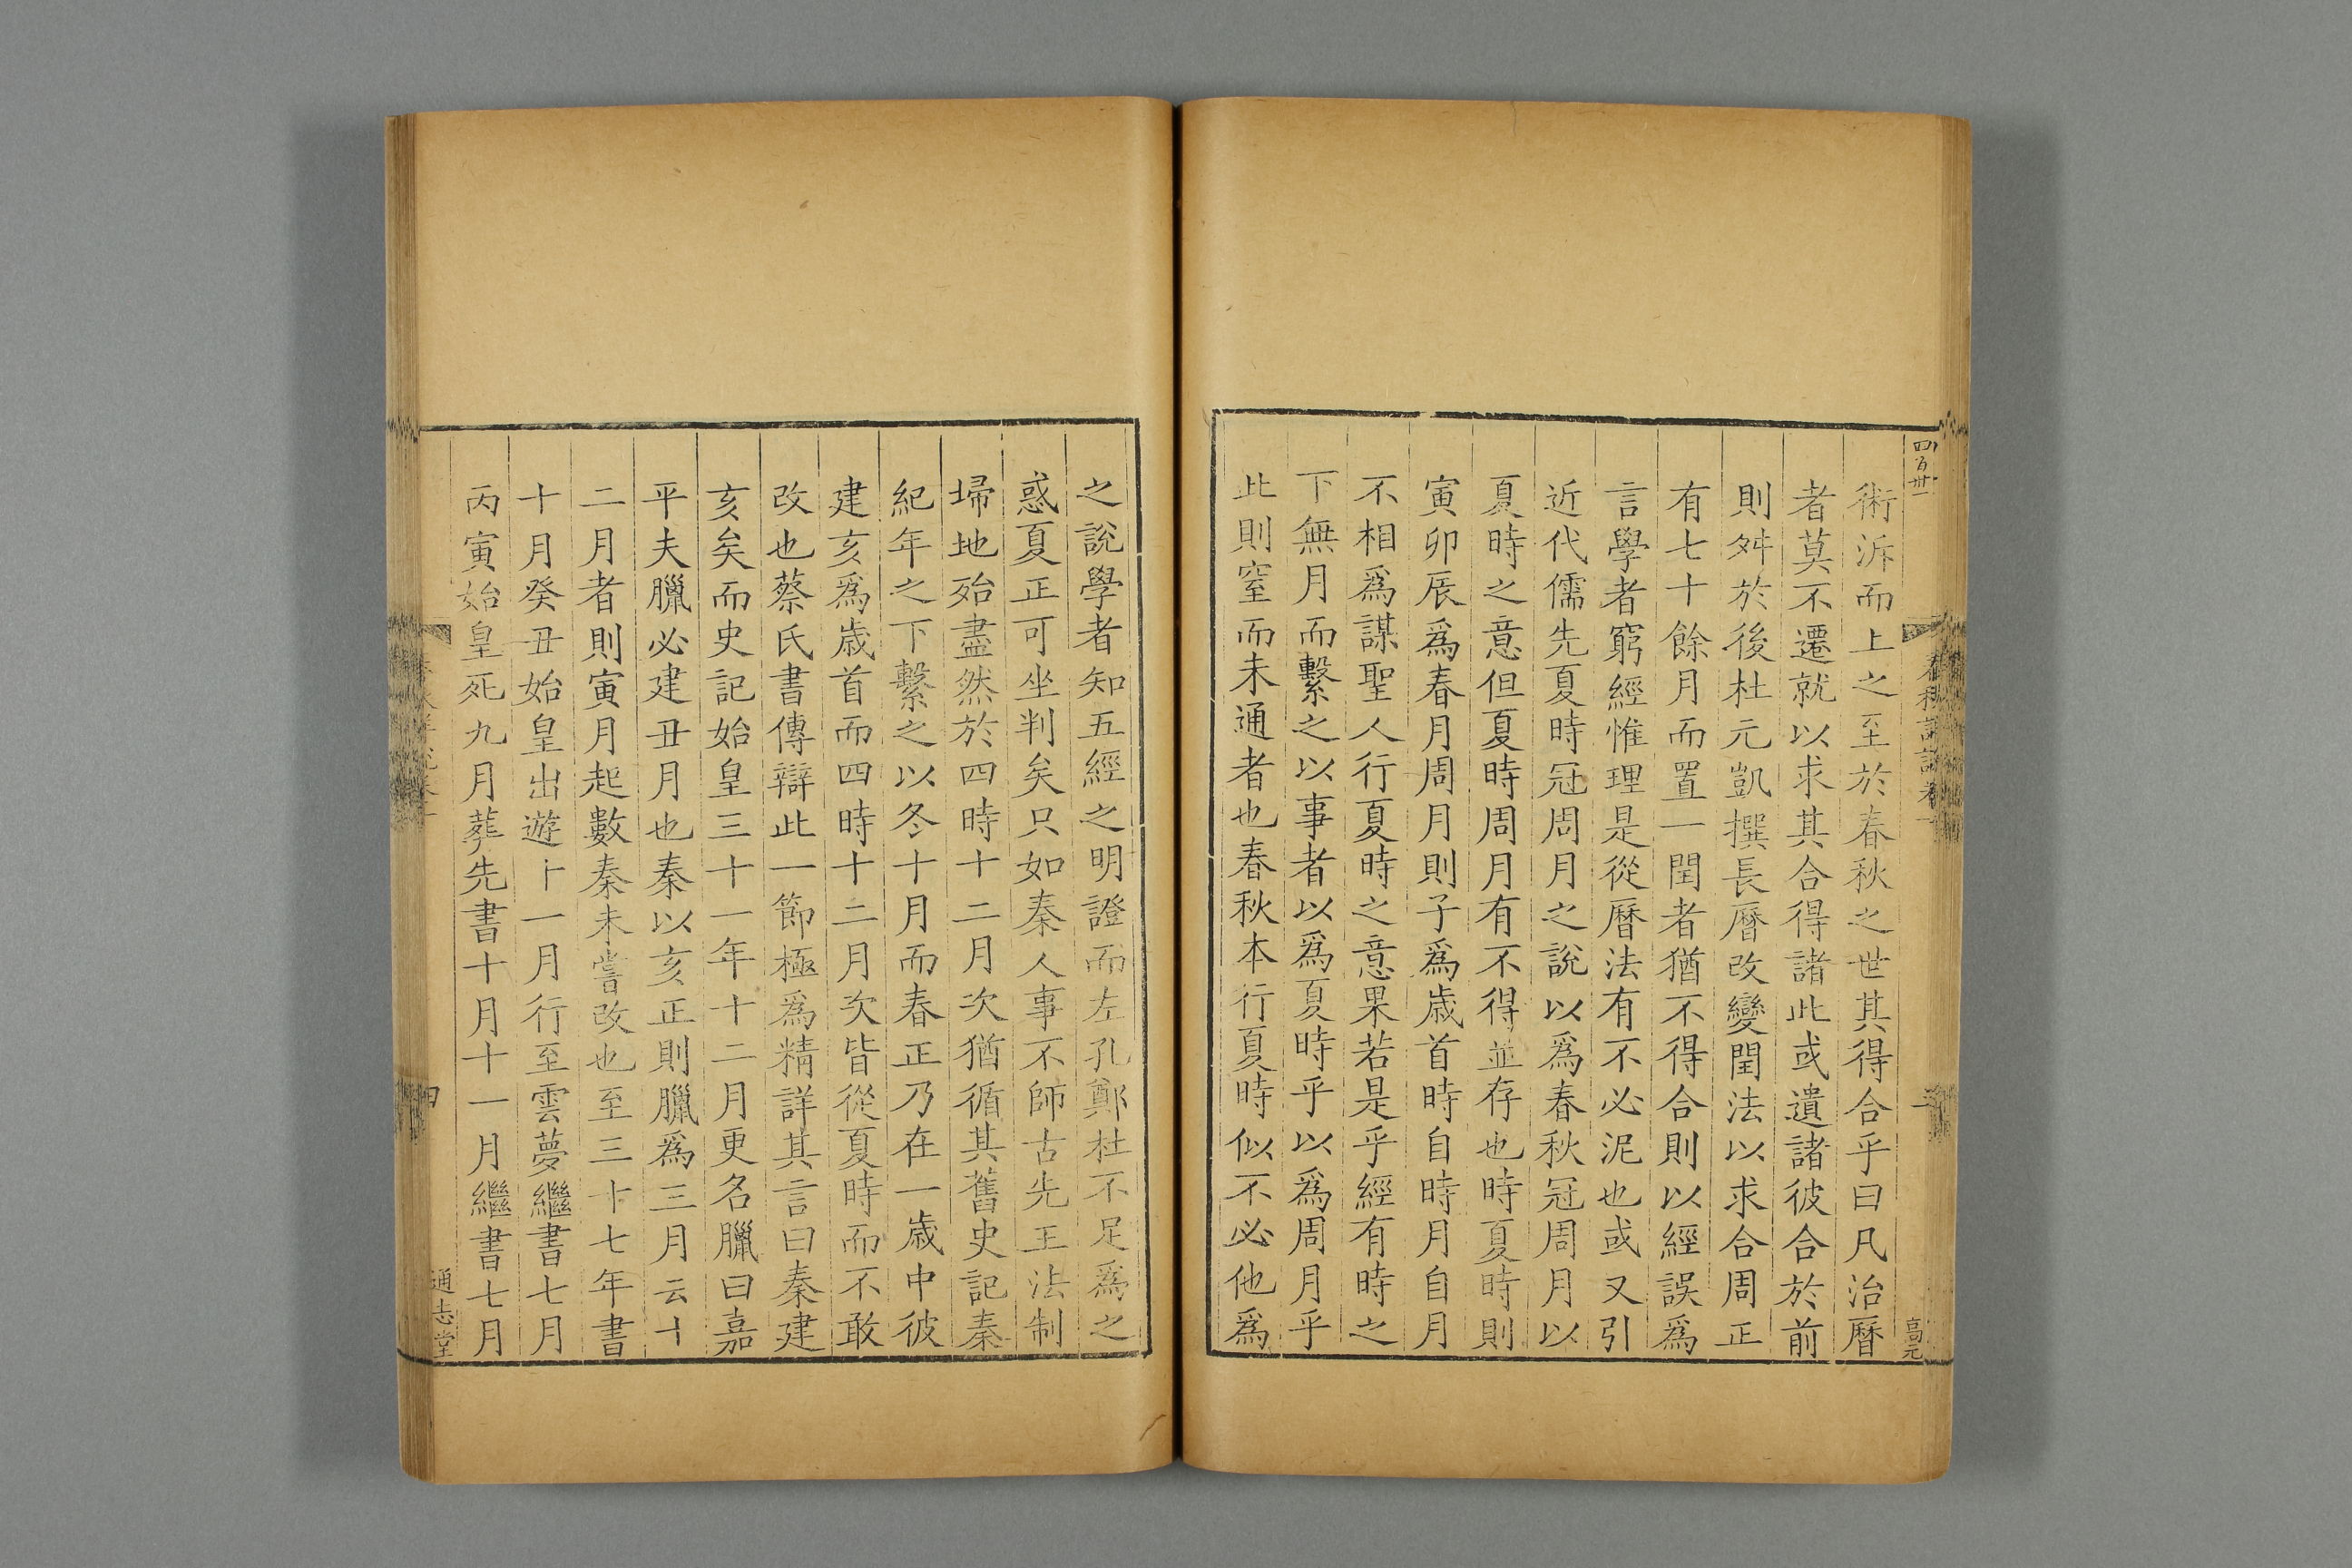 四百卅一
高元
術泝而上之至於春秋之世其得合乎曰凡治曆
者莫不遷就以求其合得諸此或遺諸彼合於前
則舛於後杜元凱撰長曆改變閏法以求合周正
有七十餘月而置一閏者猶不得合則以經誤爲
言學者窮經惟理是從曆法有不必泥也或又引
近代儒先夏時冠周月之說以爲春秋冠周月以
夏時之意但夏時周月有不得並存也時夏時則
寅卯辰爲春月周月則子爲歲首時自時月自月
不相爲謀聖人行夏時之意果若是乎經有時之
下無月而繫之以事者以爲夏時乎以爲周月乎
此則窒而未通者也春秋本行夏時似不必他爲
之說學者知五經之明證而左孔鄭杜不足爲之
惑夏正可坐判矣只如秦人事不師古先王法制
埽地殆盡然於四時十二月次猶循其舊史記秦
紀年之下繫之以冬十月而春正乃在一歲中彼
建亥爲歲首而四時十二月次皆從夏時而不敢
改也蔡氏書傳辯此一節極爲精詳其言曰秦建
亥矣而史記始皇三十一年十二月更名臘曰嘉
平夫臘必建丑月也秦以亥正則臘爲三月云十
二月者則寅月起數秦未嘗改也至三十七年書
十月癸丑始皇出遊十一月行至雲夢繼書七月
丙寅始皇死九月葬先書十月十一月繼書七月
四
通志堂